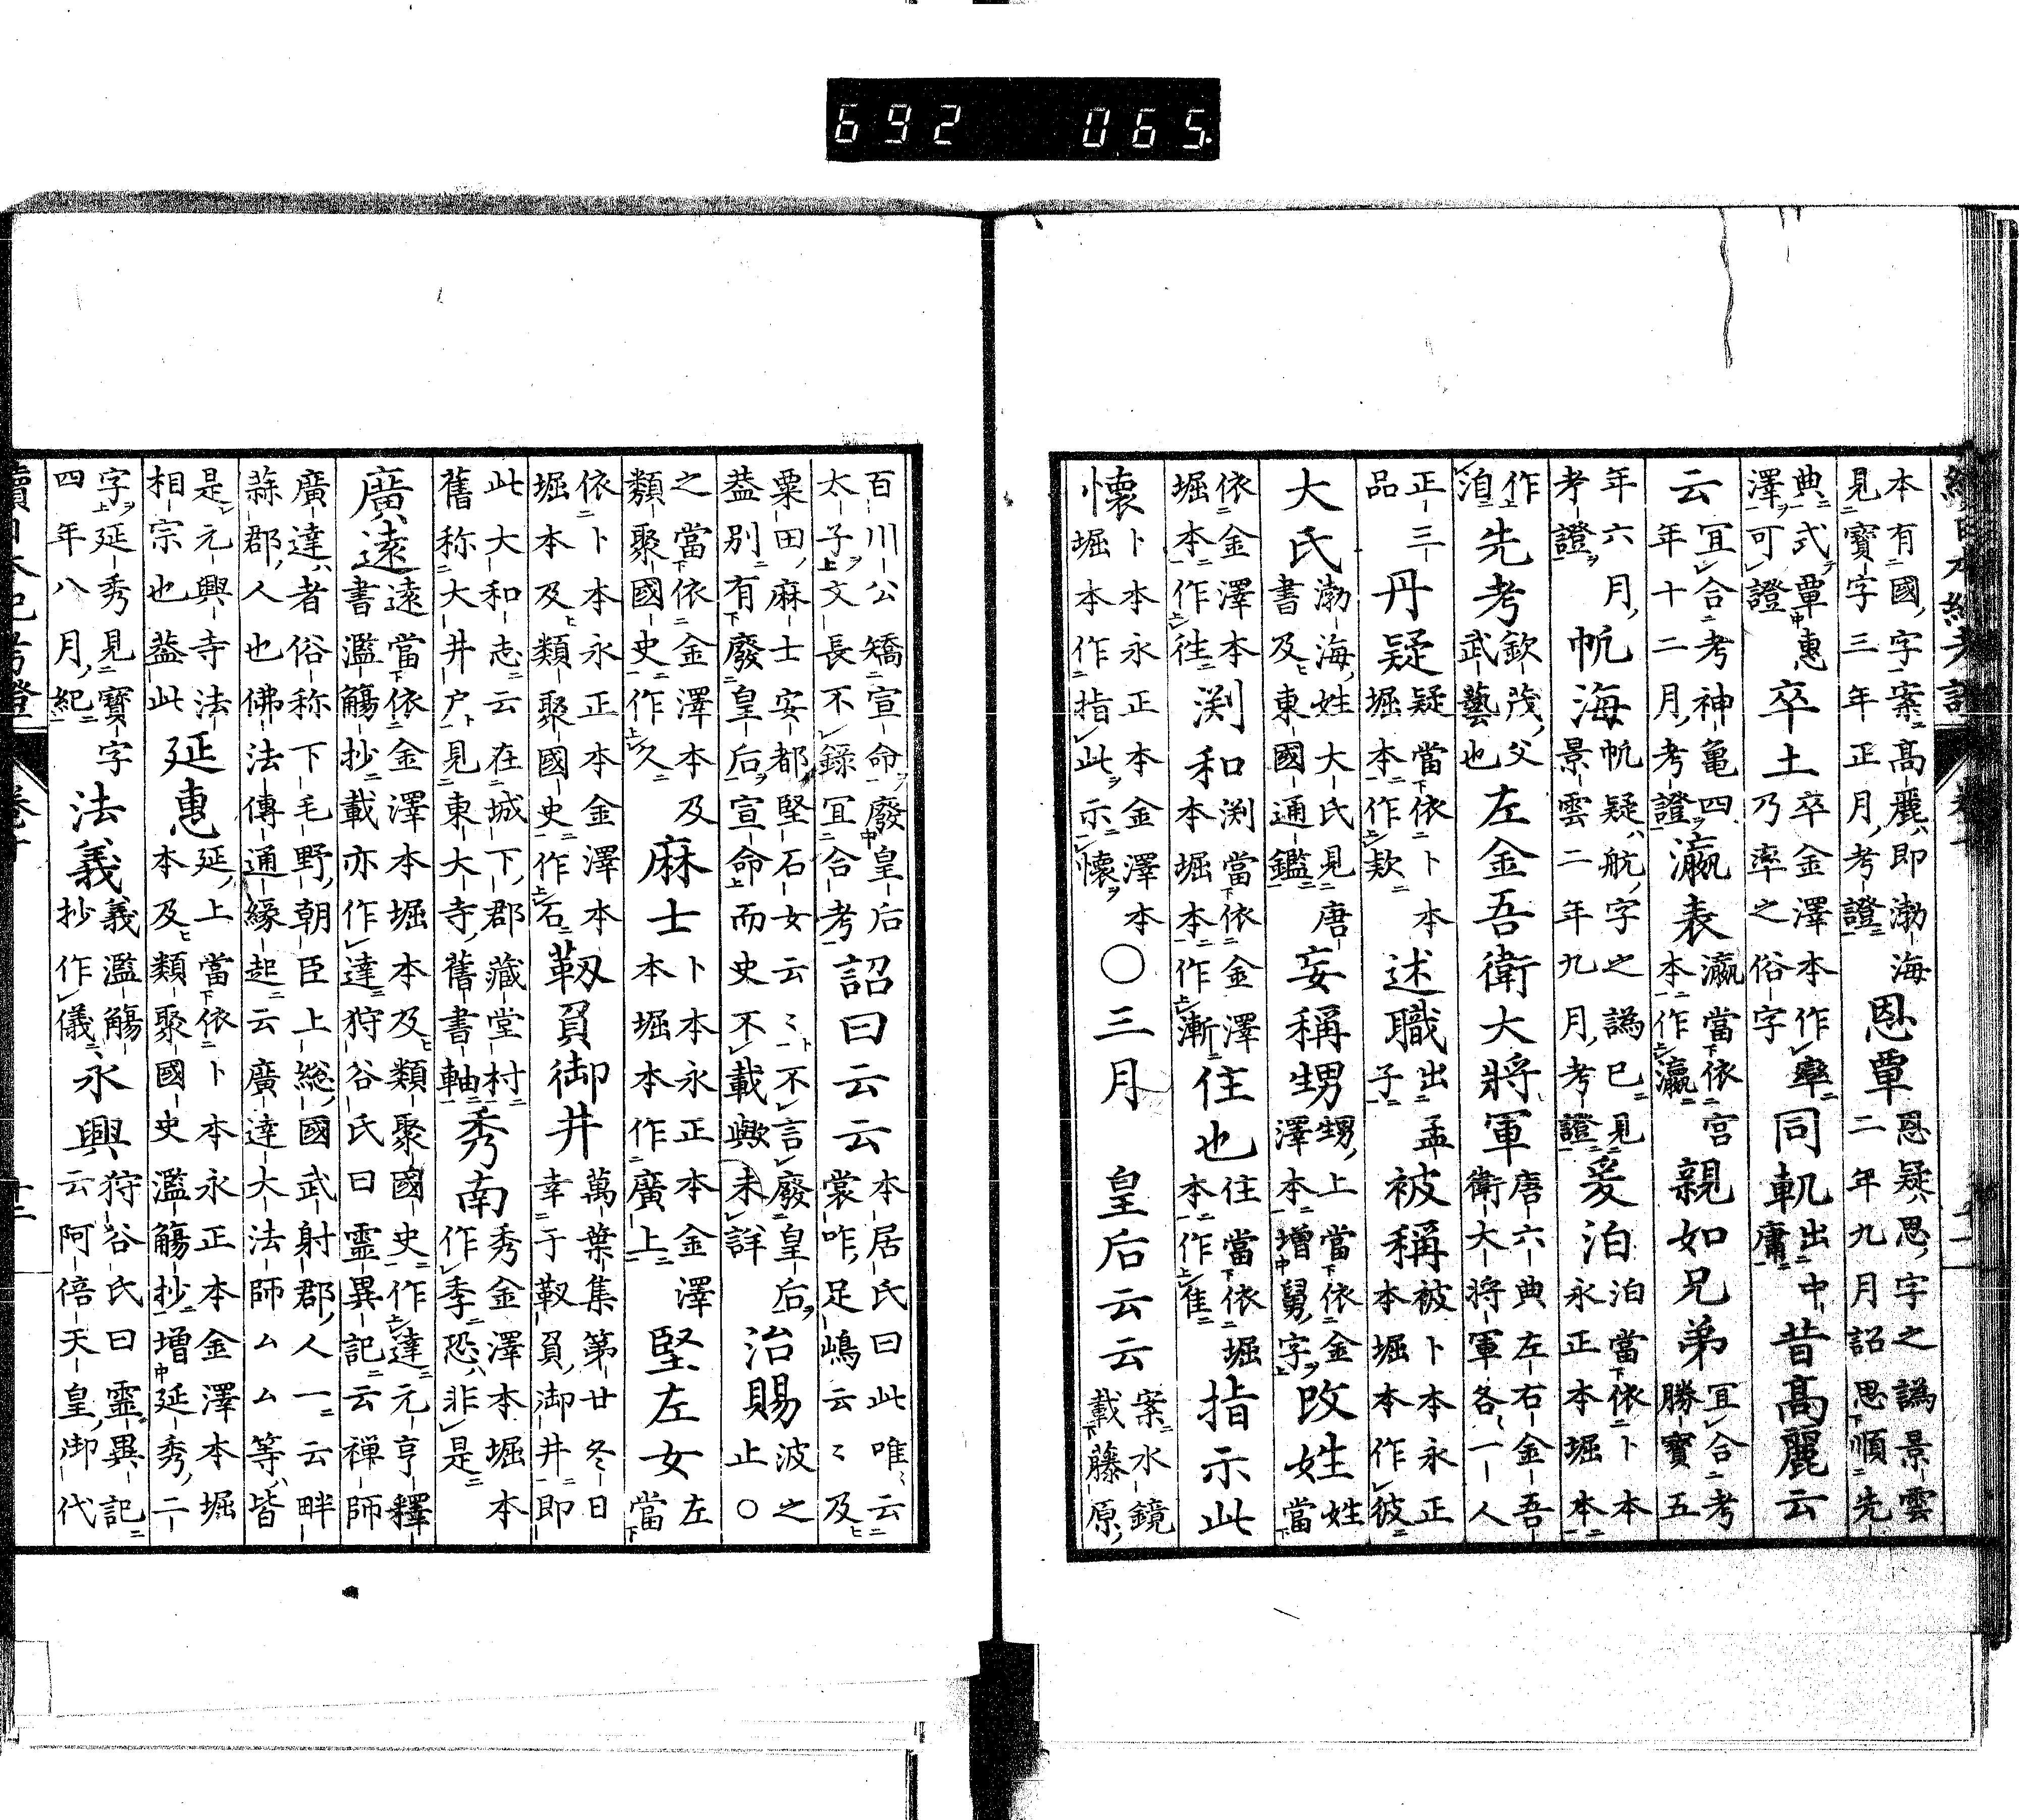 692 065.
本有國字案高麗即渤海
見寶字三年正月考證
恩覃
恩疑思字之譌景雲
二年九月詔思順先
典式覃惠
澤可證
卒土
卒金澤本作率
乃率之俗字
同軌
出中
庸
昔高麗云
云
宜合考神亀四
年十二月考證
瀛表
瀛當依宮
本作瀛
親如兄弟
宜合考
勝寶五
年六月
考證
帆海
帆疑航字之譌已見
景雲二年九月考證
爰泊
泊當依卜本
永正本堀本
作
洎
先考
欽茂父
武藝也
左金吾衛大將軍
唐六典左右金吾
衛大將軍各一人
正三
品
丹疑
疑當依卜本
堀本作欵
述職
出孟
子
被稱
被卜本永正
本堀本作彼
大氏
渤海姓大氏見唐
書及東國通鑑
妄稱甥
甥上當依金
澤本增舅字
改姓
姓當
依金澤本
堀本作往
渕和
渕當依金澤
本堀本作漸
住也
住當依堀
本作隹
指示此
懷
卜本永正本金澤本
堀本作指此示懷
○三月
皇后云云
案水鏡
載藤原
百川公矯宣命廢皇后
太子文長不錄宜合考
詔曰云云
本居氏曰此唯云
裳咋足嶋云〻及
粟田麻士安都堅石女云〻不言廢皇后
葢別有廢皇后宣命而史不載歟未詳
治賜
波之
止○
之當依金澤本及
類聚國史作久
麻士
卜本永正本金澤
本堀本作廣上
堅左女
左
當
依卜本永正本金澤本
堀本及類聚國史作石
靱負御井
萬葉集第廿冬日
幸于靫負御井即
此大和志云在城下郡藏堂村
舊称大井户見東大寺舊書軸
秀南
秀金澤本堀本
作季恐非是
廣遠
遠當依金澤本堀本及類聚國史作達元亨釋
書濫觴抄載亦作達狩谷氏曰靈異記云禅師
廣達者俗称下毛野朝臣上総國武射郡人一云畔
蒜郡人也佛法傳通緣起云廣達大法師ムム等皆
是元興寺法
相宗也葢此
延惠
延上當依卜本永正本金澤本堀
本及類聚國史濫觴抄增延秀二
字延秀見寶字
四年八月紀
法義
義濫觴
抄作儀
永興
狩谷氏曰靈異記
云阿倍天皇御代